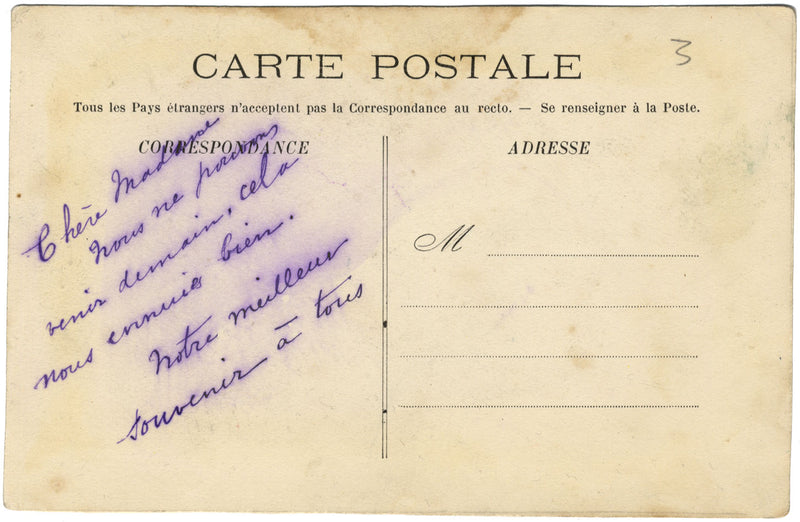 3
CARTE POSTALE
Tous les Pays étrangers n'acceptent pas la Correspondance au recto. — Se renseigner à la Poste.
CORRESPONDANCE
Chère Madame
Nous ne pouvons
venir demain, cela
nous ennuie bien.
Notre meilleur
souvenir à tous
ADRESSE
M